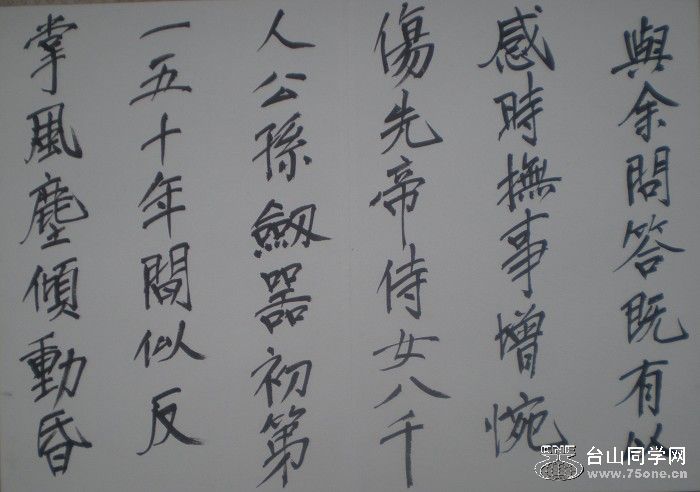 與余問答既有以
感時撫事增惋
傷先帝侍女八千
人公孫劔器初第
一五十年間似反
掌風塵傾動昏
台山同学网
www.75one.cn